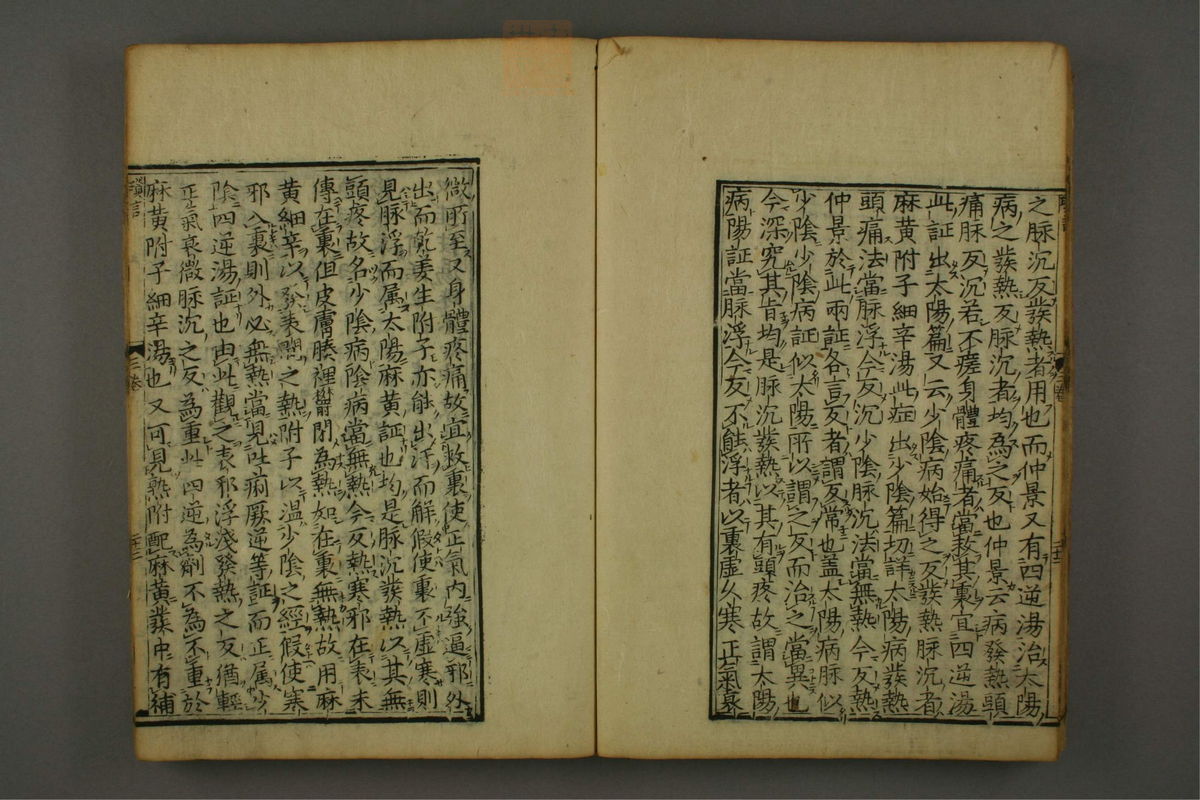 之脉沉反發熱者用也而仲景又有四逆湯治太陽
病之發熱反脉沉者均為之反也仲景云病發熱頭
痛脉反沉若不瘥身體疼痛者當救其裏宜四逆湯
此証出太陽篇又云少陰病始得之反發熱脉沉者
麻黄附子細辛湯此症出少陰篇切詳太陽病發熱
頭痛法當脉浮今反沉少陰脉沉法當無熱今反熱
仲景於此兩証各言反者謂反常也盖太陽病脉似
少陰少陰病証似太陽所以謂之反而治之當異也
今深究其旨均是脉沉發熱以其有頭疼故謂太陽
病陽証當脉浮今反不能浮者以裏虛久寒正氣衰
微所至又身體疼痛故宜救裏使正氣内強逼邪外
出而乾姜生附子亦能出汗而解假使裏不虛寒則
見脉浮而属太陽麻黄証也均是脉沉發熱以其無
頭疼故名少陰病陰病當無熱今反熱寒邪在表未
傳在裏但皮膚腠裡欝閉為熱如在裏無熱故用麻
黄細辛以發表間之熱附子以温少陰之經假使寒
邪入裏則外必無熱當見吐痢厥逆等証而正属少
陰四逆湯証也由此觀之表邪浮淺發熱之反猶輕
正氣衰微脉沉之反為重此四逆為劑不為不重於
麻黄附子細辛湯也又可見熟附配麻黄發中有補